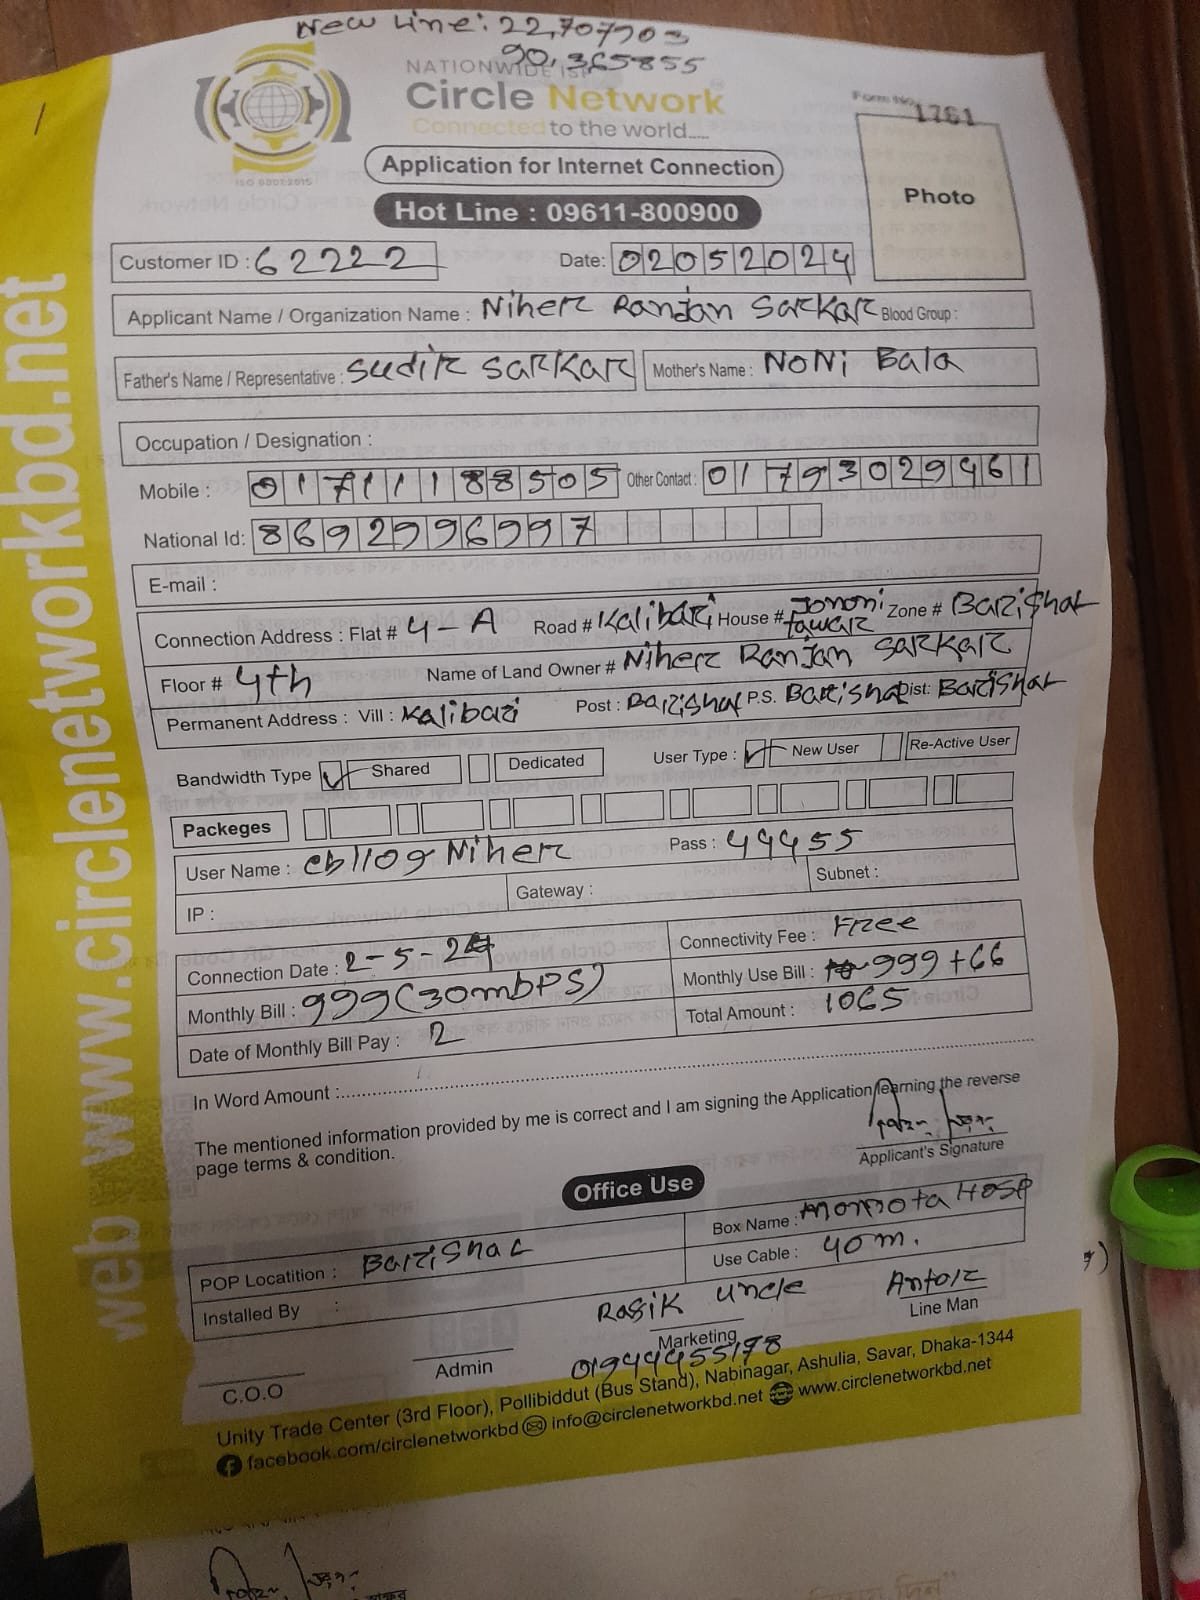 New Line: 22,707703
90,365855
NATIONWIDE ISP
Circle Network
Connected to the world.....
ISO 9001:2015
Form No. 1761
Application for Internet Connection
Photo
Hot Line : 09611-800900
Customer ID : 62222 Date: 02052024
Applicant Name / Organization Name : Niher Ranjan Sarkar Blood Group :
Father's Name / Representative : Sudir Sarkar Mother's Name : NONi Bala
Occupation / Designation :
Mobile : 01711188505 Other Contact : 01793029461
National Id: 8692996997
E-mail :
Connection Address : Flat # 4-A Road # Kalibari House # Jononi tawar Zone # Barishal
Floor # 4th Name of Land Owner # Niher Ranjan Sarkar
Permanent Address : Vill : Kalibari Post : Barishal P.S. Barishal Dist: Barishal
Bandwidth Type Shared Dedicated User Type : New User Re-Active User
Packeges
User Name : Niher Pass : 44455
IP : Gateway : Subnet :
Connection Date : 2-5-24 Connectivity Fee : Free
Monthly Bill : 999(30mbps) Monthly Use Bill : 999+66
Date of Monthly Bill Pay : 2 Total Amount : 1065
In Word Amount :
The mentioned information provided by me is correct and I am signing the Application learning the reverse
page terms & condition.
Applicant's Signature
Office Use
POP Locatition : Barishal Box Name : Momota Hosp
Installed By : Use Cable : 40m.
Rasik uncle Antor
C.O.O Admin Marketing Line Man
01944455178
Unity Trade Center (3rd Floor), Pollibiddut (Bus Stand), Nabinagar, Ashulia, Savar, Dhaka-1344
facebook.com/circlenetworkbd info@circlenetworkbd.net www.circlenetworkbd.net
web www.circlenetworkbd.net